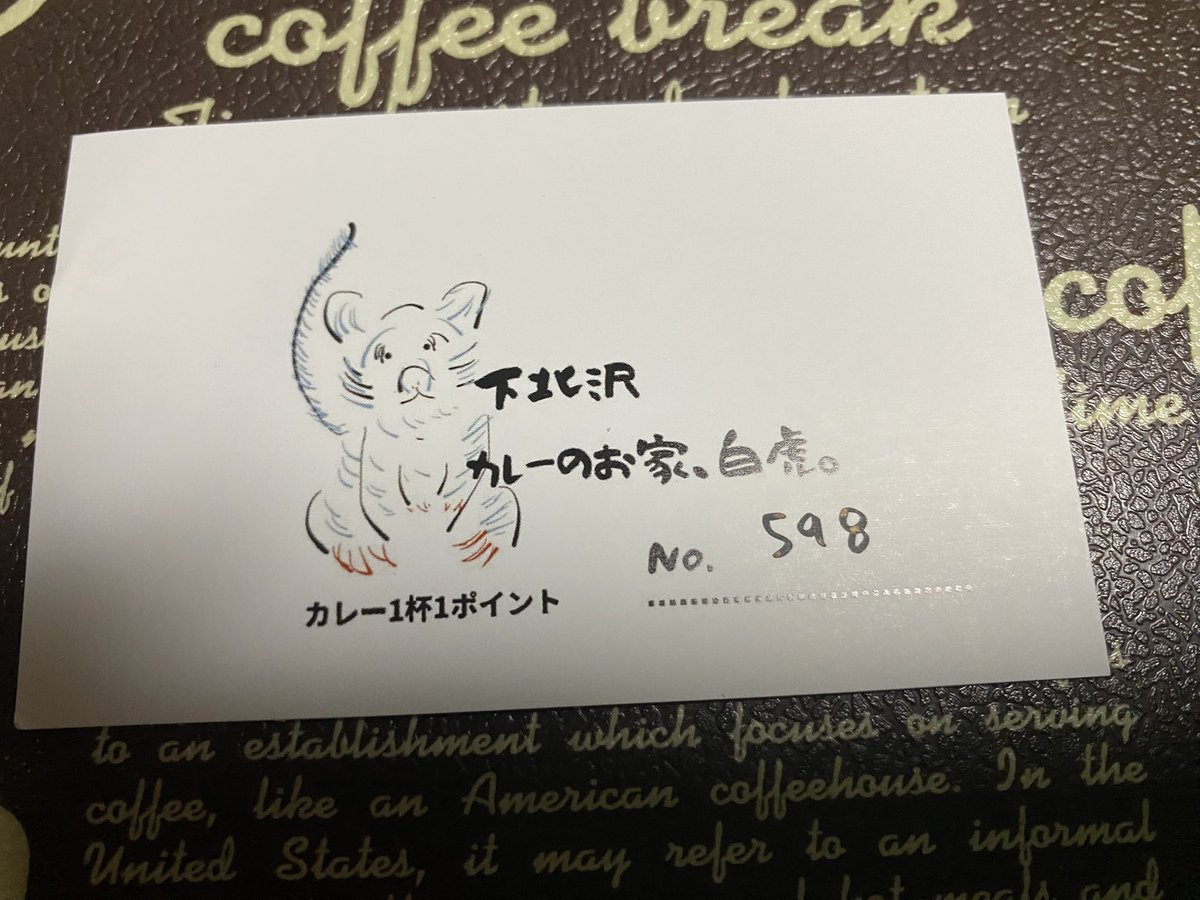 coffee break
下北沢
カレーのお家。白虎。
No. 598
カレー1杯1ポイント
time
to an establishment which focuses on serving
coffee, like an American coffeehouse. In the
United States, it may refer to an informal
meals and